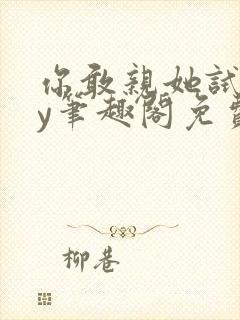 你敢亲她试
y笔趣阁免费
柳巷